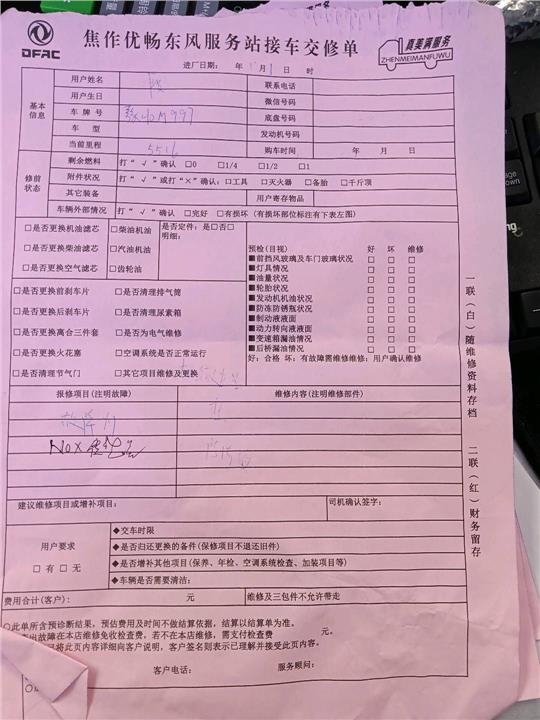 DFAC
焦作优畅东风服务站接车交修单
真美满服务
ZHENMEIMANFUWU
进厂日期： 年 月1日 时
基本信息
用户姓名 联系电话
用户生日 微信号码
车牌号 M997 底盘号码
车型 发动机号码
当前里程 5516 购车时间 年 月 日
修前状态
剩余燃料 打“√”确认 □0 □1/4 □1/2 □1
附件状况 打“√”或打“×”确认：□工具 □灭火器 □备胎 □千斤顶
其它装备 用户寄存物品
车辆外部情况 打“√”确认 □完好 □有损坏（有损坏部位标注有下表左图）
□是否更换机油滤芯 □柴油机油 是否定件：是□否□
明细：
□是否更换柴油滤芯 □汽油机油
□是否更换空气滤芯 □齿轮油
预检（目视） 好 坏 维修
■前挡风玻璃及车门玻璃状况 □ □ □
■灯具情况 □ □ □
■油量状况 □ □ □
■轮胎状况 □ □ □
■发动机机油状况 □ □ □
■防冻防锈瓶状况 □ □ □
■制动液液面 □ □ □
■动力转向液液面 □ □ □
■变速箱漏油情况 □ □ □
■后桥漏油情况 □ □ □
好：合格 坏：有故障需维修维修：用户确认维修
□是否更换前刹车片 □是否清理排气筒
□是否更换后刹车片 □是否清理尿素箱
□是否更换离合三件套 □是否为电气维修
□是否更换火花塞 □空调系统是否正常运行
□是否清理节气门 □其它项目维修及更换
报修项目（注明故障） 维修内容（注明维修部件）
故障灯
NOx
建议维修项目或增补项目： 司机确认签字：
用户要求
□有□无
◆交车时限
◆是否归还更换的备件（保修项目不退还旧件）
◆是否增补其他项目（保养、年检、空调系统检查、加装项目等）
◆车辆是否需要清洁：
费用合计（客户）： 元 维修及三包件不允许带走
○此单所含预诊断结果，预估费用及时间不做结算依据，结算以结算单为准。
出故障在本店维修免收检查费，若不在本店维修，需支付检查费 元。
已将此页内容详细向客户说明，客户签名则表示已理解并接受此页内容。
客户电话： 服务顾问：
一联（白）随维修资料存档
二联（红）财务留存